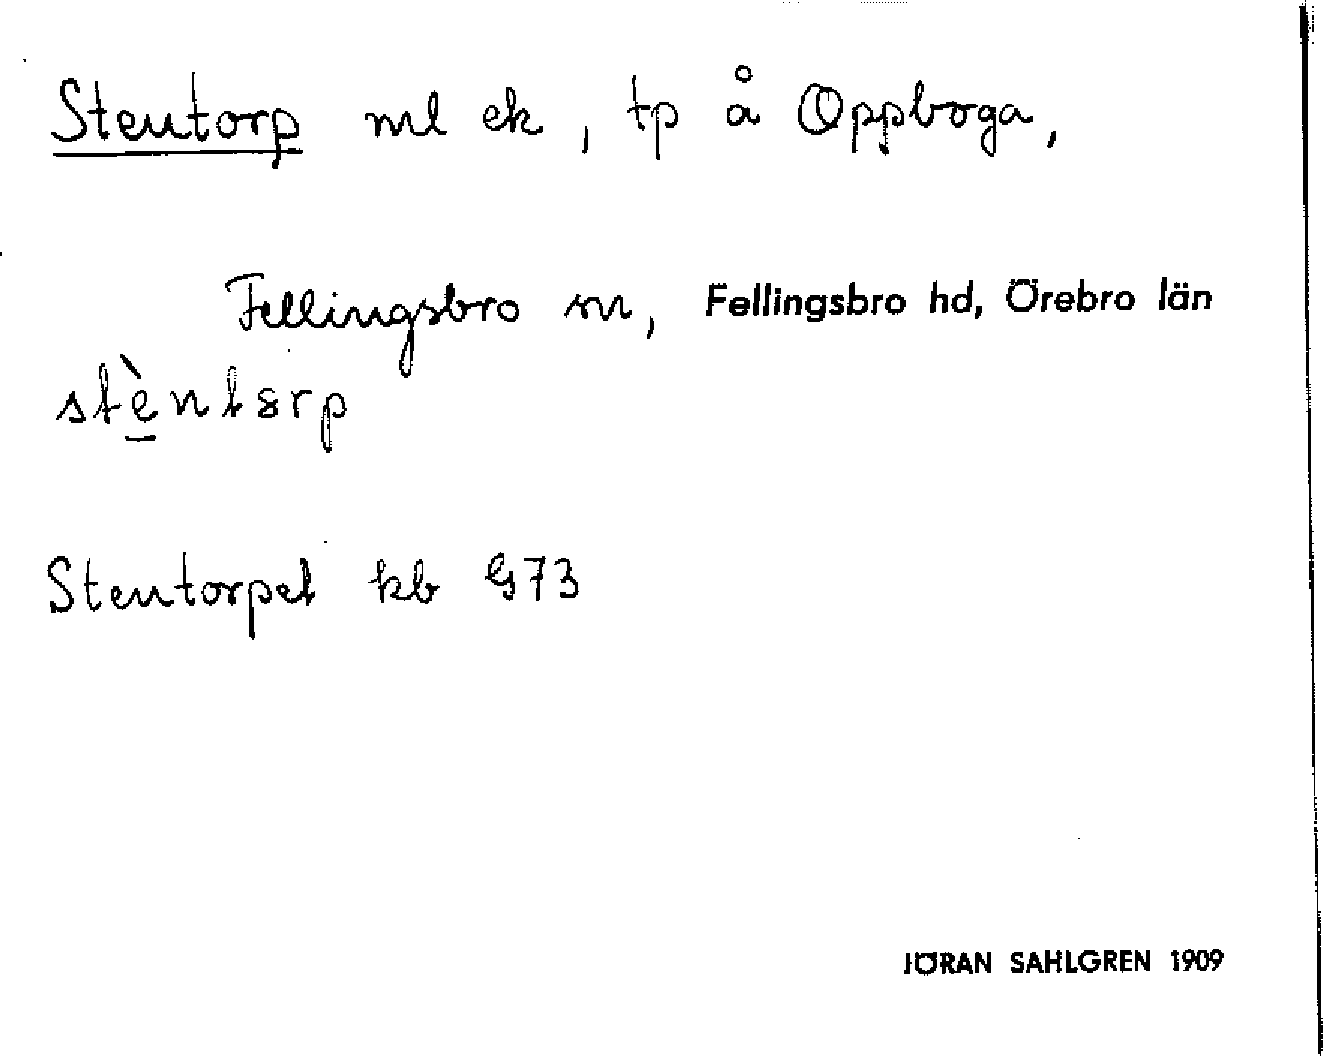 Stentorp ml ek, tp å Oppboga,
Fellingsbro sn, Fellingsbro hd, Örebro län
stèntȣrp
Stentorpet kb G73
JÖRAN SAHLGREN 1909